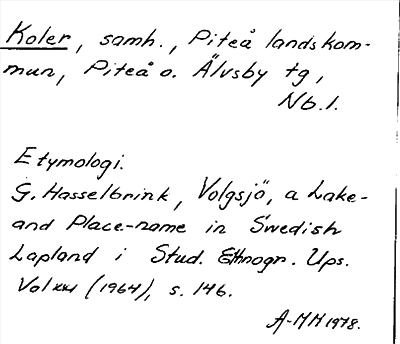 Koler, samh., Piteå landskom-
mun, Piteå o. Älvsby tg,
Nb.l.
Etymologi.
G. Hasselbrink, Volgsjö, a Lake-
and Place-name in Swedish
Lapland i Stud. Ethnogr. Ups.
Vol xxi (1964), s. 146.
A-MH 1978.